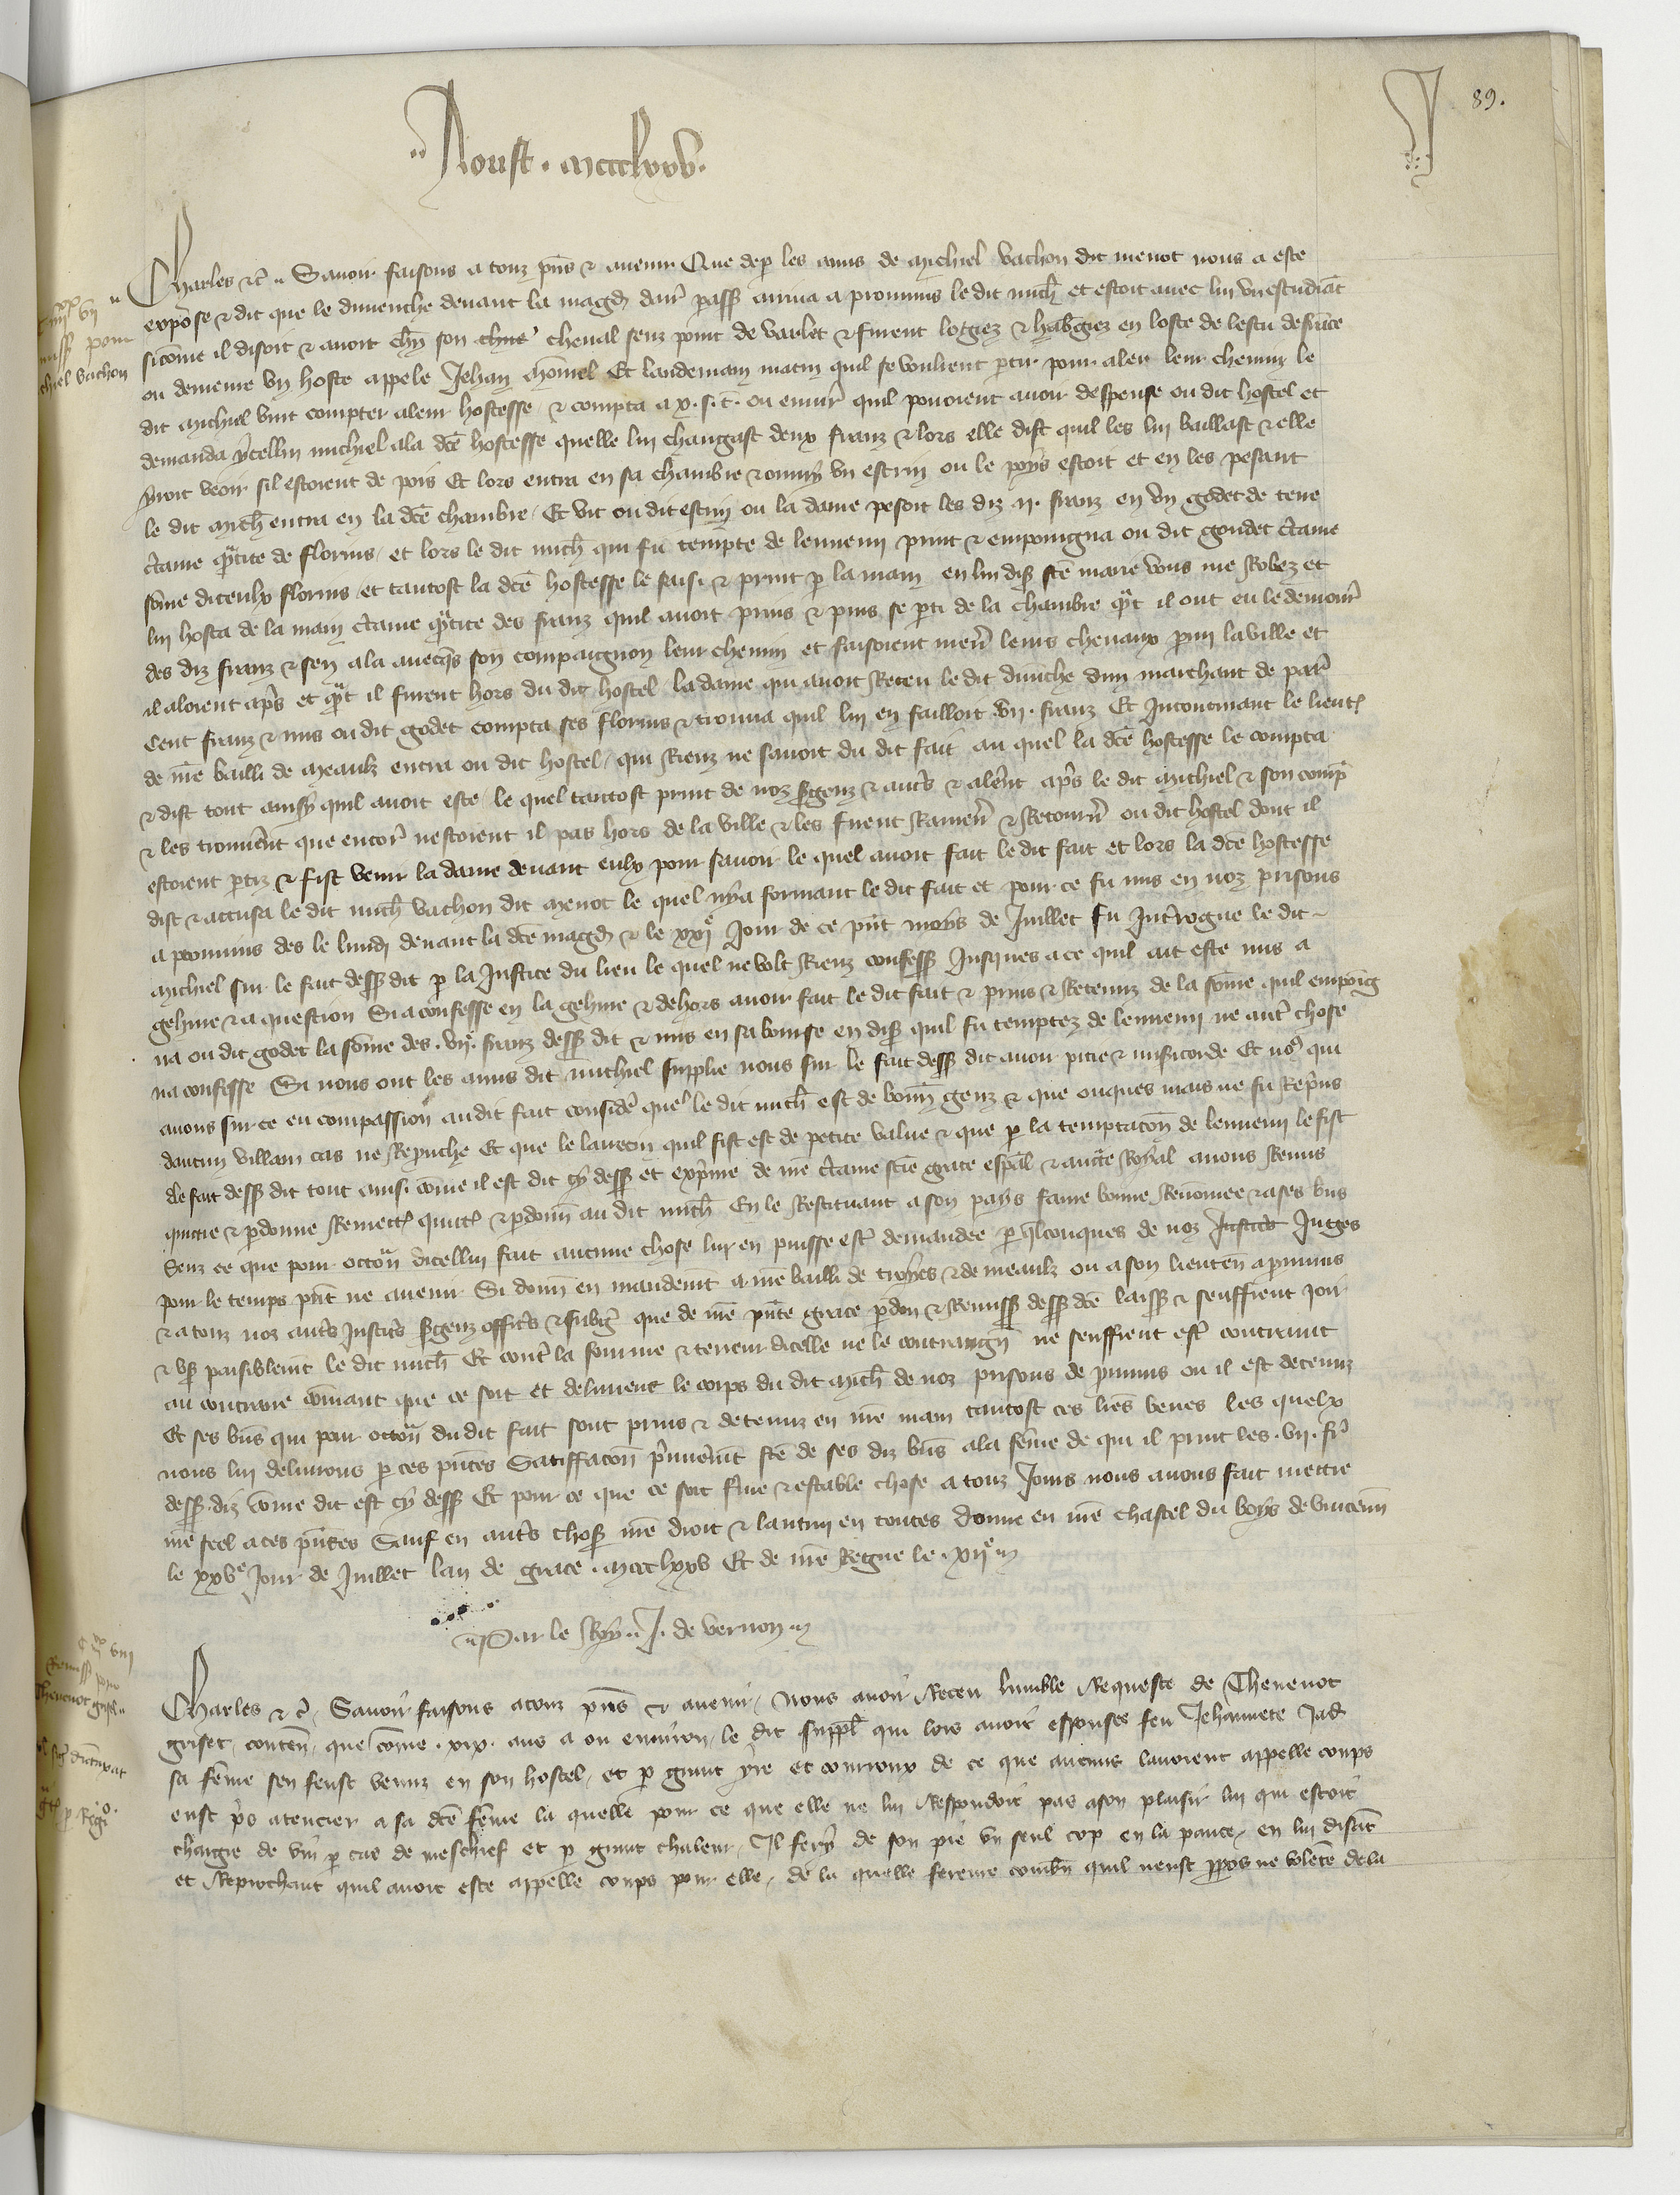 89.
Aoust . mccclxxv.
Charles etc. Savoir faisons a touz pns et avenir Que de p les amis de Michiel Vachon dit Menot nous a este
expose et dit que le dimenche devant la magd darr pass arriva a Prouvins le dit mich et estoit avec lui un estudiat
si come il disoit et avoit chn son cheval senz point de varlet et furent logiez et habgiez en loste de lescu de france
ou demeure un hoste appele Jehan Et landemain matin quil se vouloient ptir pour aler leur chemin le
dit Michiel vint compter a leur hostesse et compta a x. s. t. ou envir quil povoient avoir despense ou dit hostel et
demanda ycellui michiel a la dce hostesse quelle lui changast deux franz et lors elle dist quil les lui baillast et elle
yroit veoir sil estoient de pois Et lors entra en sa chambre et ouvry un escrin ou le poys estoit et en les pesant
le dit Mich entra en la dce chambre Et vit ou dit escrin ou la dame pesoit les diz .ii. franz en un godet de terre
ctaine qtite de florins et lors le dit mich qui fu tempte de lennemi print et empoingna ou dit goudet ctaine
some diceulx florins et tantost la dce hostesse le saisi et print p la main en lui dis ste marie vous me robez et
lui hosta de la main ctaine qtite des franz quil avoit prins et puis se pti de la chambre qt il out eu le demour
des diz franz et sen ala avecqs son compaignon leur chemin et faisoient men leurs chevaux pmi la ville et
il aloient aps et qt il furent hors du dit hostel la dame qui avoit receu le dit dimche dun marchant de par
Cent franz et mis ou dit godet compta ses florins et trouva quil lui en failloit vii. franz Et incontinant le lieut
de nre bailli de Meaulx entra ou dit hostel qui riens ne savoit du dit fait au quel la dce hostesse le compta
et dist tout ainsy quil avoit este le quel tantost print de noz sgenz et auts et alent aps le dit Michiel et son comp
et les trouvent que encor nestoient il pas hors de la ville et les furent ramen et retourn ou dit hostel dont il
estoient ptiz et fist venir la dame devant eulx pour savoir le quel avoit fait le dit fait et lors la dce hostesse
dist et accusa le dit mich vachon dit Menot le quel nya formant le dit fait et pour ce fu mis en noz prisons
a prouvins des le lundi devant la dce magd et le xxi jour de ce pnt moys de Juillet fu Introgue le dit
Michiel sur le fait dess dit p la Justice du lieu le quel ne volt riens confess Jusques a ce quil ait este mis a
gehine et a question Si a confesse en la gehine et dehors avoir fait le dit fait et prins et retenuz de la some quil empoig
na ou dit godet la some des .vii. franz dess dit et mis en sa bourse en dis quil fu temptez de lennemi ne autr chose
na confesse Si nous ont les amis dit michiel supplie nous sur le fait dess dit avoir pitie et misicorde Et nos qui
avons sur ce eu compassion au dit fait conside que le dit mich est de bonn genz et que onques mais ne fu reprins
daucun villain cas ne reprouche Et que le larrecin quil fist est de petite value et que p la temptacon de lennemi le fist
Le fait dess dit tout ainsi come il est dit cy dess et expme de nre ctaine scie grace espal et aucte royal avons remis
quictie et pdonne remect quict et pdonn au dit mich En le restituant a son pays fame bonne renomee et a ses bns
Senz ce que pour occon dicellui fait aucune chose lui en puisse est demandee p qlconques de noz Justices Juges
pour le temps pnt ne avenir Si donn en mandemt a nre bailli de troyes et de meaulx ou a son lieuten a prouvins
et a touz noz auts justics sgenz offics et subig que de nre pnte grace pdon et remiss dess dce laiss et seuffrent joir
et us paisiblemt le dit mich Et cont la fourme et teneur dicelle ne le contraign ne seuffrent est contraint
au contraire comant que ce soit et delivrent le corps du dit Mich de noz prisons de prouvins ou il est detenuz
Et ses bns qui pour occon du dit fait sont prins et detenuz en nre main tantost ces lres veues les quelx
nous lui delivrons p ces pntes Satiffacon pmieremt fte de ses diz bns a la feme de qui il print les .vii. fr
dess diz come dit est cy dess Et pour ce que ce soit fme et estable chose a touz Jours nous avons fait mettre
nre seel a ces pntes Sauf en auts chos nre droit et lautrui en toutes Donne en nre chastel du boys de vincenn
le xxve Jour de Juillet lan de grace mccclxxv Et de nre Regne le xiie
Par le Roy J. de vernon
Charles etc. Savoir faisons a touz pns et avenir, Nous avoir receu lumble requeste de Thevenot
griset, conten, que come .xix. ans a ou environ, le dit suppl qui lors avoit espousee feu Jehannete Jad
sa feme sen feust venuz en son hostel, et p grant yre et courroux de ce que aucuns lavoient appelle coups
eust ps a tencier a sa dce feme la quelle pour ce que elle ne lui respondoit pas a son plaisir lui qui estoit
chargie de vin p cas de meschief et p grant chaleur, Il fery de son pie un seul cop en la pance, en lui disat
et reprochant quil avoit este appelle coups pour elle, de la quelle fereure combn quil neust ppos ne volete de la